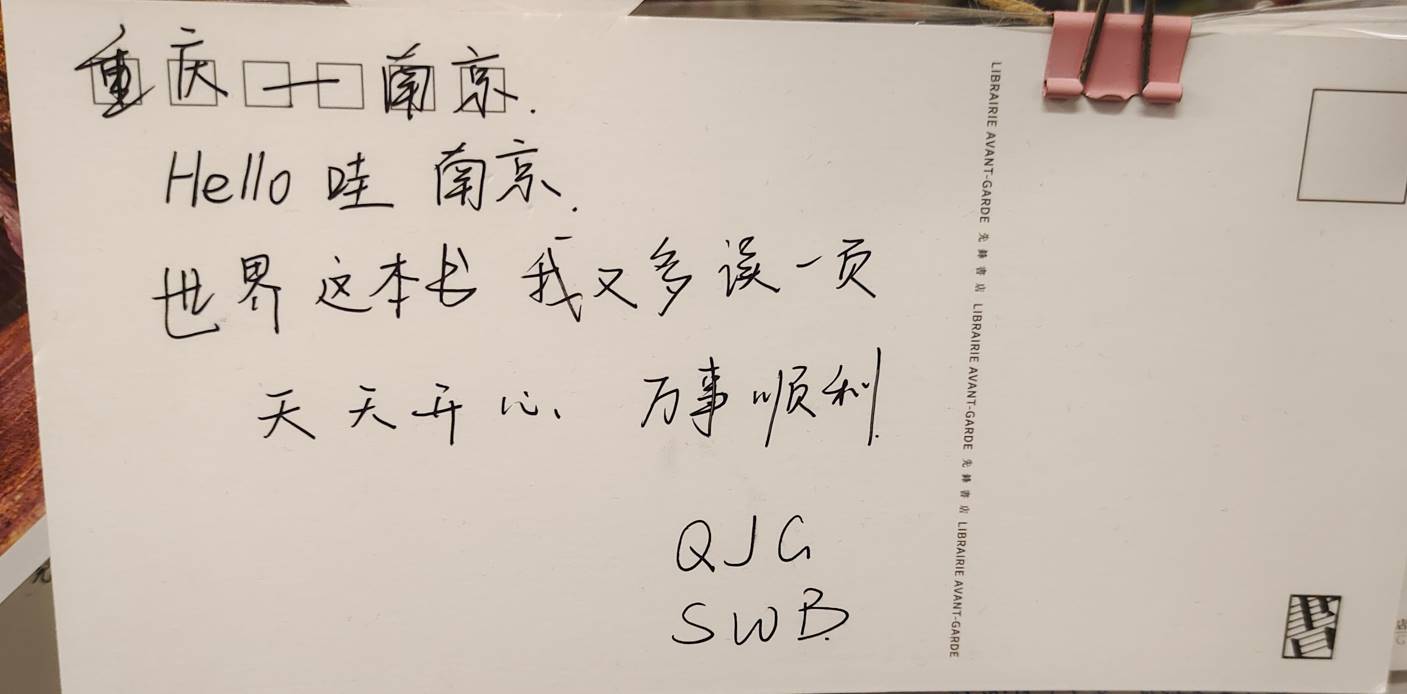 重庆 — 南京.
Hello 哇 南京.
世界这本书 我又多读一页
天天开心、 万事顺利.
QJG
SWB.
LIBRAIRIE AVANT-GARDE 先鋒書店 LIBRAIRIE AVANT-GARDE 先鋒書店 LIBRAIRIE AVANT-GARDE